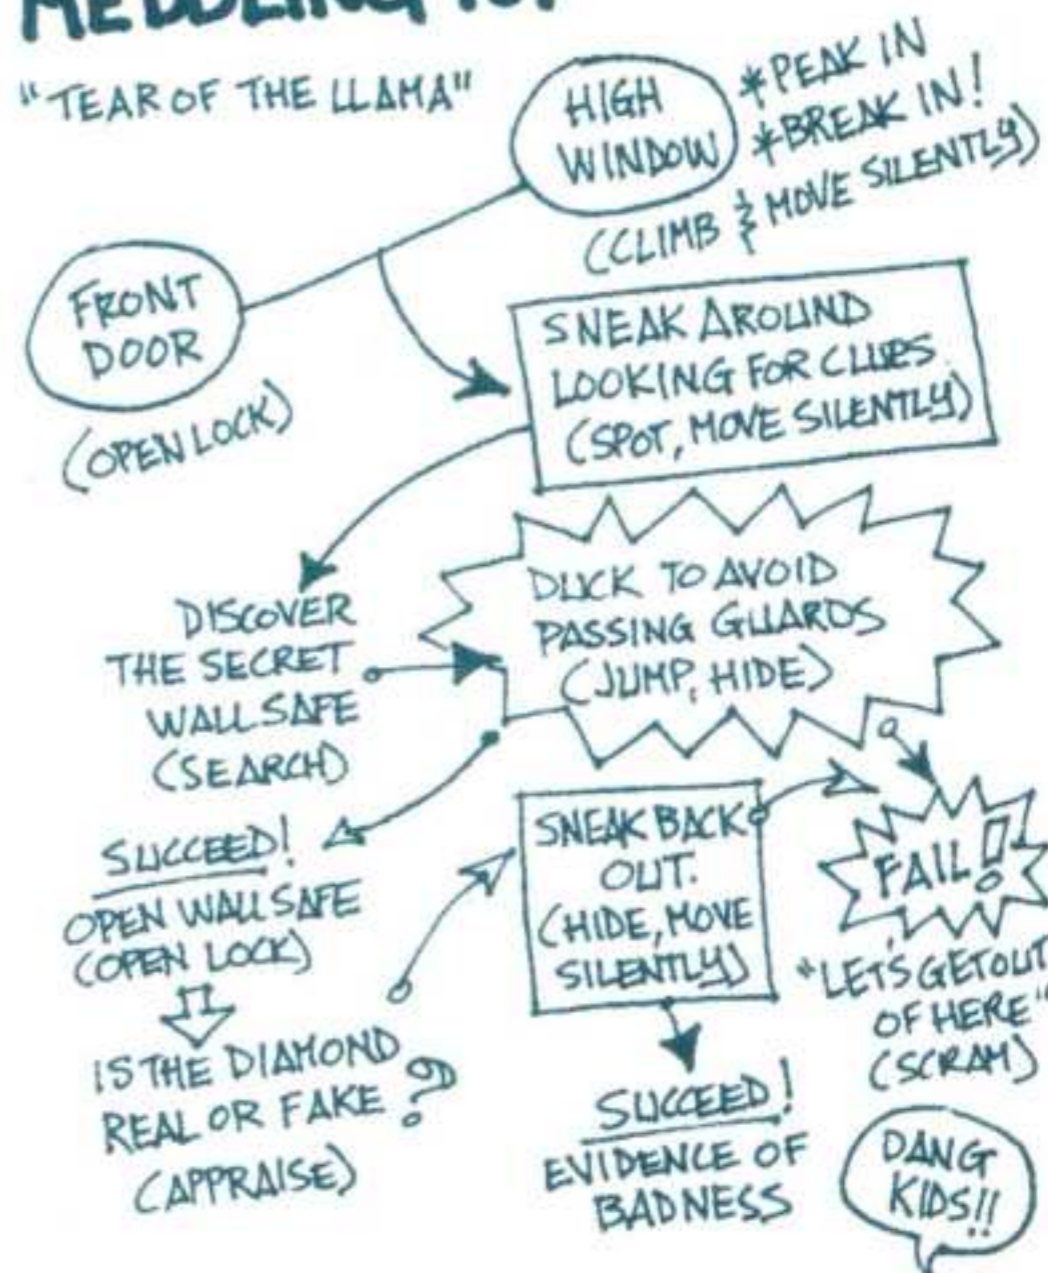 "TEAR OF THE LLAMA"
HIGH
WINDOW
*PEAK IN
*BREAK IN!
(CLIMB & MOVE SILENTLY)
FRONT
DOOR
(OPEN LOCK)
SNEAK AROUND
LOOKING FOR CLUES.
(SPOT, MOVE SILENTLY)
DISCOVER
THE SECRET
WALL SAFE
(SEARCH)
DUCK TO AVOID
PASSING GUARDS
(JUMP, HIDE)
SUCCEED!
OPEN WALL SAFE
(OPEN LOCK)
IS THE DIAMOND
REAL OR FAKE?
(APPRAISE)
SNEAK BACK
OUT.
(HIDE, MOVE
SILENTLY)
SUCCEED!
EVIDENCE OF
BADNESS
FAIL!
"LET'S GET OUT
OF HERE"
(SCRAM)
DANG
KIDS!!